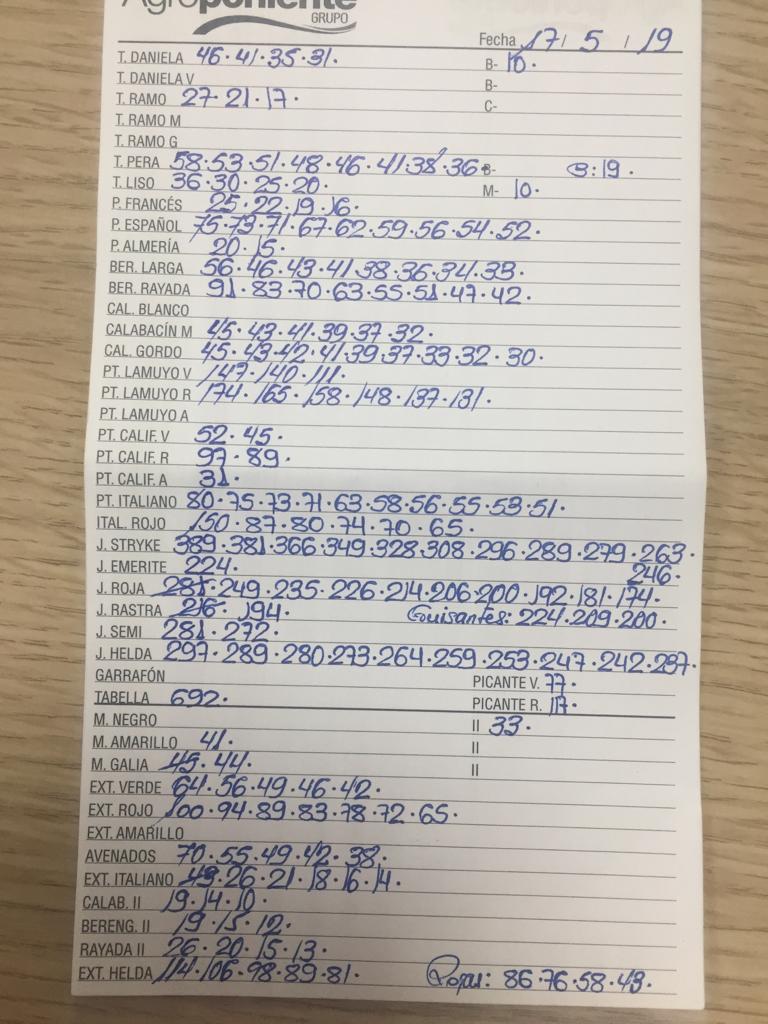 Agroponiente
GRUPO
Fecha 17/ 5 / 19
T. DANIELA 46·41·35·31· B- 10·
T. DANIELA V B-
T. RAMO 27·21·17· C-
T. RAMO M
T. RAMO G
T. PERA 58·53·51·48·46·41·38·36· B- B:19·
T. LISO 36·30·25·20· M- 10·
P. FRANCÉS 25·22·19·16·
P. ESPAÑOL 75·73·71·67·62·59·56·54·52·
P. ALMERÍA 20·15·
BER. LARGA 56·46·43·41·38·36·34·33·
BER. RAYADA 91·83·70·63·55·51·47·42·
CAL. BLANCO
CALABACÍN M 45·43·41·39·37·32·
CAL. GORDO 45·43·42·41·39·37·33·32·30·
PT. LAMUYO V 147·140·111·
PT. LAMUYO R 174·165·158·148·137·131·
PT. LAMUYO A
PT. CALIF. V 52·45·
PT. CALIF. R 97·89·
PT. CALIF. A 31·
PT. ITALIANO 80·75·73·71·63·58·56·55·53·51·
ITAL. ROJO 150·87·80·74·70·65·
J. STRYKE 389·381·366·349·328·308·296·289·279·263·
J. EMERITE 224· 246·
J. ROJA 281·249·235·226·214·206·200·192·181·174·
J. RASTRA 216·194· Guisantes: 224·209·200·
J. SEMI 281·272·
J. HELDA 297·289·280·273·264·259·253·247·242·237·
GARRAFÓN PICANTE V. 77·
TABELLA 692· PICANTE R. 117·
M. NEGRO II 33·
M. AMARILLO 41· II
M. GALIA 45·44· II
EXT. VERDE 64·56·49·46·42·
EXT. ROJO 100·94·89·83·78·72·65·
EXT. AMARILLO
AVENADOS 70·55·49·42·38·
EXT. ITALIANO 43·26·21·18·16·14·
CALAB. II 19·14·10·
BERENG. II 19·15·12·
RAYADA II 26·20·15·13·
EXT. HELDA 114·106·98·89·81· Rojas: 86·76·58·43·